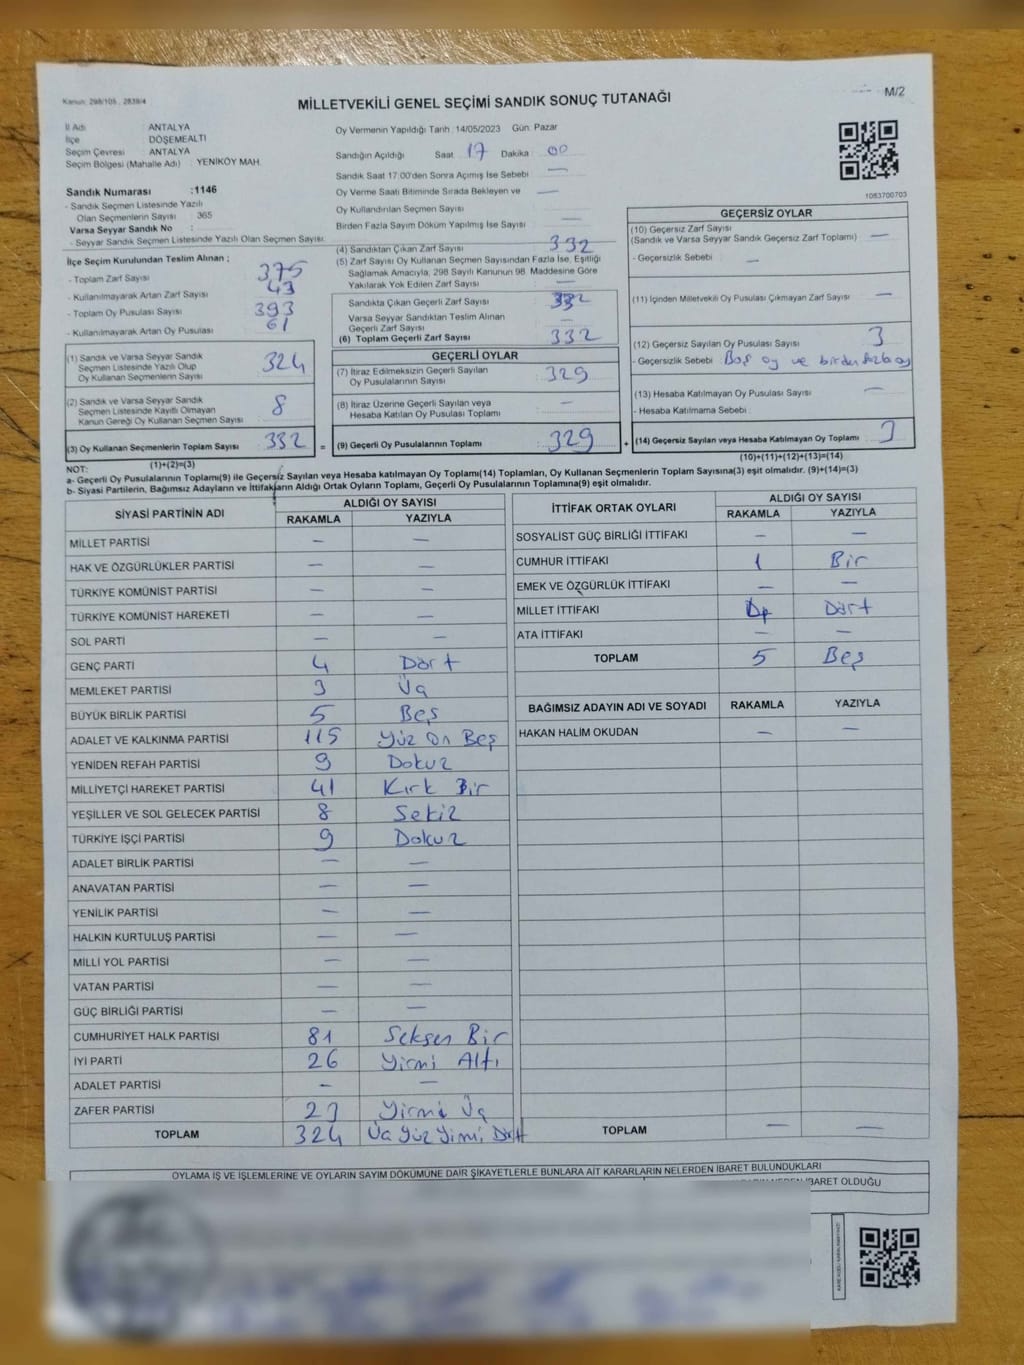 Kanun: 298/105, 2839/4
MİLLETVEKİLİ GENEL SEÇİMİ SANDIK SONUÇ TUTANAĞI
M/2
İl Adı ANTALYA
İlçe DÖŞEMEALTI
Seçim Çevresi : ANTALYA
Seçim Bölgesi (Mahalle Adı) : YENİKÖY MAH.
Sandık Numarası :1146
- Sandık Seçmen Listesinde Yazılı
Olan Seçmenlerin Sayısı : 365
Varsa Seyyar Sandık No :
- Seyyar Sandık Seçmen Listesinde Yazılı Olan Seçmen Sayısı:
İlçe Seçim Kurulundan Teslim Alınan ;
- Toplam Zarf Sayısı 375
- Kullanılmayarak Artan Zarf Sayısı 43
- Toplam Oy Pusulası Sayısı 393
- Kullanılmayarak Artan Oy Pusulası 61
(1) Sandık ve Varsa Seyyar Sandık
Seçmen Listesinde Yazılı Olup
Oy Kullanan Seçmenlerin Sayısı 324
(2) Sandık ve Varsa Seyyar Sandık
Seçmen Listesinde Kayıtlı Olmayan
Kanun Gereği Oy Kullanan Seçmen Sayısı 8
(3) Oy Kullanan Seçmenlerin Toplam Sayısı 332 =
(1)+(2)=(3)
Oy Vermenin Yapıldığı Tarih :14/05/2023 Gün: Pazar
Sandığın Açıldığı Saat : 17 Dakika : 00
Sandık Saat 17:00'den Sonra Açımış İse Sebebi : —
Oy Verme Saati Bitiminde Sırada Bekleyen ve —
Oy Kullandırılan Seçmen Sayısı
Birden Fazla Sayım Döküm Yapılmış İse Sayısı —
(4) Sandıktan Çıkan Zarf Sayısı 332
(5) Zarf Sayısı Oy Kullanan Seçmen Sayısından Fazla İse, Eşitliği
Sağlamak Amacıyla, 298 Sayılı Kanunun 98. Maddesine Göre
Yakılarak Yok Edilen Zarf Sayısı —
Sandıkta Çıkan Geçerli Zarf Sayısı 332
Varsa Seyyar Sandıktan Teslim Alınan
Geçerli Zarf Sayısı —
(6) Toplam Geçerli Zarf Sayısı 332
GEÇERLİ OYLAR
(7) İtiraz Edilmeksizin Geçerli Sayılan
Oy Pusulalarının Sayısı 329
(8) İtiraz Üzerine Geçerli Sayılan veya
Hesaba Katılan Oy Pusulası Toplamı —
(9) Geçerli Oy Pusulalarının Toplamı 329 +
1063700703
GEÇERSİZ OYLAR
(10) Geçersiz Zarf Sayısı
(Sandık ve Varsa Seyyar Sandık Geçersiz Zarf Toplamı) —
- Geçersizlik Sebebi : —
(11) İçinden Milletvekili Oy Pusulası Çıkmayan Zarf Sayısı —
(12) Geçersiz Sayılan Oy Pusulası Sayısı 3
- Geçersizlik Sebebi : Boş oy ve birden fazla oy
(13) Hesaba Katılmayan Oy Pusulası Sayısı —
- Hesaba Katılmama Sebebi :
(14) Geçersiz Sayılan veya Hesaba Katılmayan Oy Toplamı 3
(10)+(11)+(12)+(13)=(14)
NOT:
a- Geçerli Oy Pusulalarının Toplamı(9) ile Geçersiz Sayılan veya Hesaba katılmayan Oy Toplamı(14) Toplamları, Oy Kullanan Seçmenlerin Toplam Sayısına(3) eşit olmalıdır. (9)+(14)=(3)
b- Siyasi Partilerin, Bağımsız Adayların ve İttifakların Aldığı Ortak Oyların Toplamı, Geçerli Oy Pusulalarının Toplamına(9) eşit olmalıdır.
SİYASİ PARTİNİN ADI ALDIĞI OY SAYISI
RAKAMLA YAZIYLA
MİLLET PARTİSİ — —
HAK VE ÖZGÜRLÜKLER PARTİSİ — —
TÜRKİYE KOMÜNİST PARTİSİ — —
TÜRKİYE KOMÜNİST HAREKETİ — —
SOL PARTİ — —
GENÇ PARTİ 4 Dört
MEMLEKET PARTİSİ 3 Üç
BÜYÜK BİRLİK PARTİSİ 5 Beş
ADALET VE KALKINMA PARTİSİ 115 Yüz On Beş
YENİDEN REFAH PARTİSİ 9 Dokuz
MİLLİYETÇİ HAREKET PARTİSİ 41 Kırk Bir
YEŞİLLER VE SOL GELECEK PARTİSİ 8 Sekiz
TÜRKİYE İŞÇİ PARTİSİ 9 Dokuz
ADALET BİRLİK PARTİSİ — —
ANAVATAN PARTİSİ — —
YENİLİK PARTİSİ — —
HALKIN KURTULUŞ PARTİSİ — —
MİLLİ YOL PARTİSİ — —
VATAN PARTİSİ — —
GÜÇ BİRLİĞİ PARTİSİ — —
CUMHURİYET HALK PARTİSİ 81 Seksen Bir
İYİ PARTİ 26 Yirmi Altı
ADALET PARTİSİ — —
ZAFER PARTİSİ 23 Yirmi Üç
TOPLAM 324 Üç Yüz Yimi Dört
İTTİFAK ORTAK OYLARI ALDIĞI OY SAYISI
RAKAMLA YAZIYLA
SOSYALİST GÜÇ BİRLİĞİ İTTİFAKI — —
CUMHUR İTTİFAKI 1 Bir
EMEK VE ÖZGÜRLÜK İTTİFAKI — —
MİLLET İTTİFAKI 4 Dört
ATA İTTİFAKI — —
TOPLAM 5 Beş
BAĞIMSIZ ADAYIN ADI VE SOYADI RAKAMLA YAZIYLA
HAKAN HALİM OKUDAN — —
TOPLAM — —
OYLAMA İŞ VE İŞLEMLERİNE VE OYLARIN SAYIM DÖKÜMÜNE DAİR ŞİKAYETLERLE BUNLARA AİT KARARLARIN NELERDEN İBARET BULUNDUKLARI
İBARET OLDUĞU